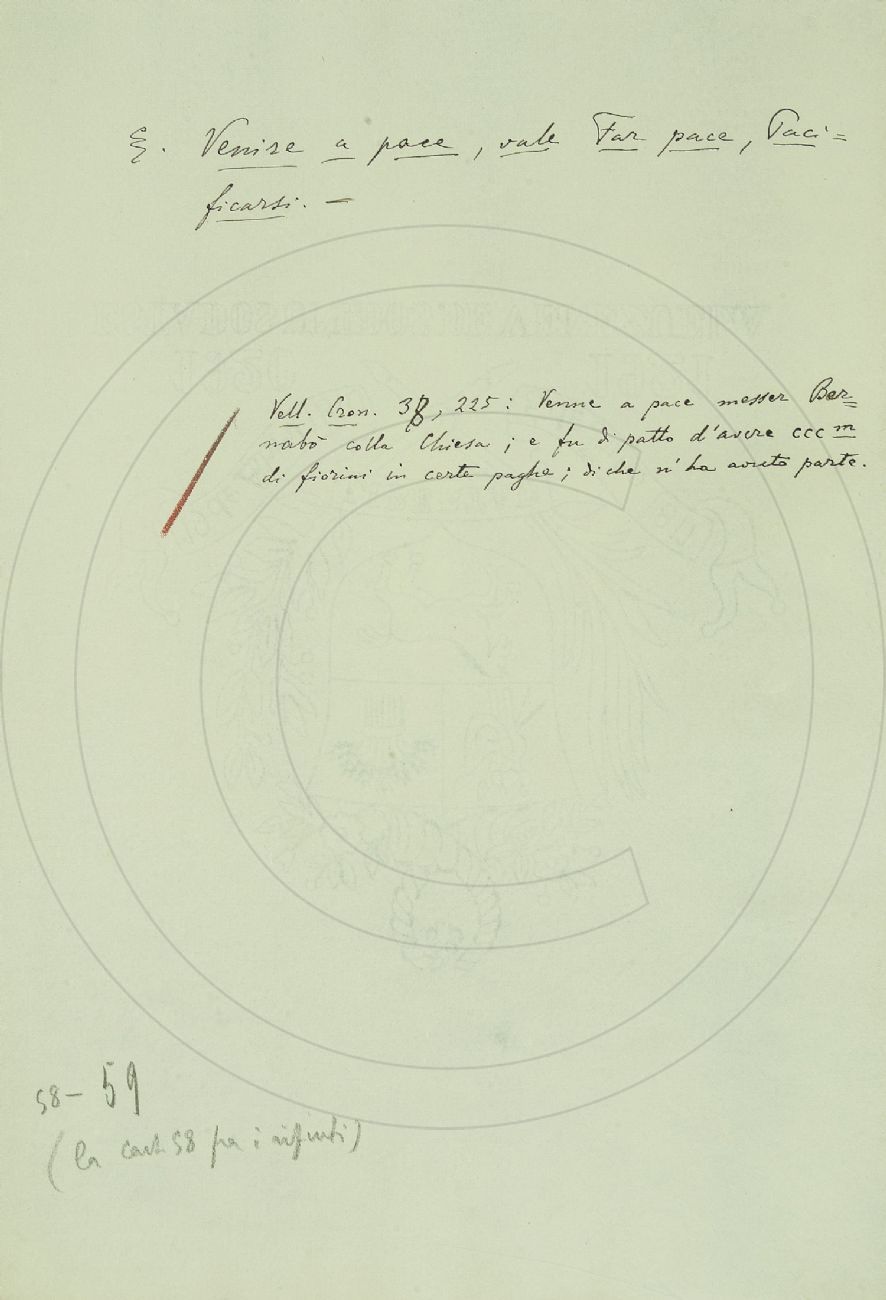 §. Venire a pace, vale Far pace, Paci=
ficarsi. —
Vell. Cron. 38, 225: Venne a pace messer Ber=
nabò colla Chiesa; e fu di patto d'avere ccc m
di fiorini in certe paghe; di che n'ha avuto parte.
58 - 59
(la cart. 58 fra i rifiuti)